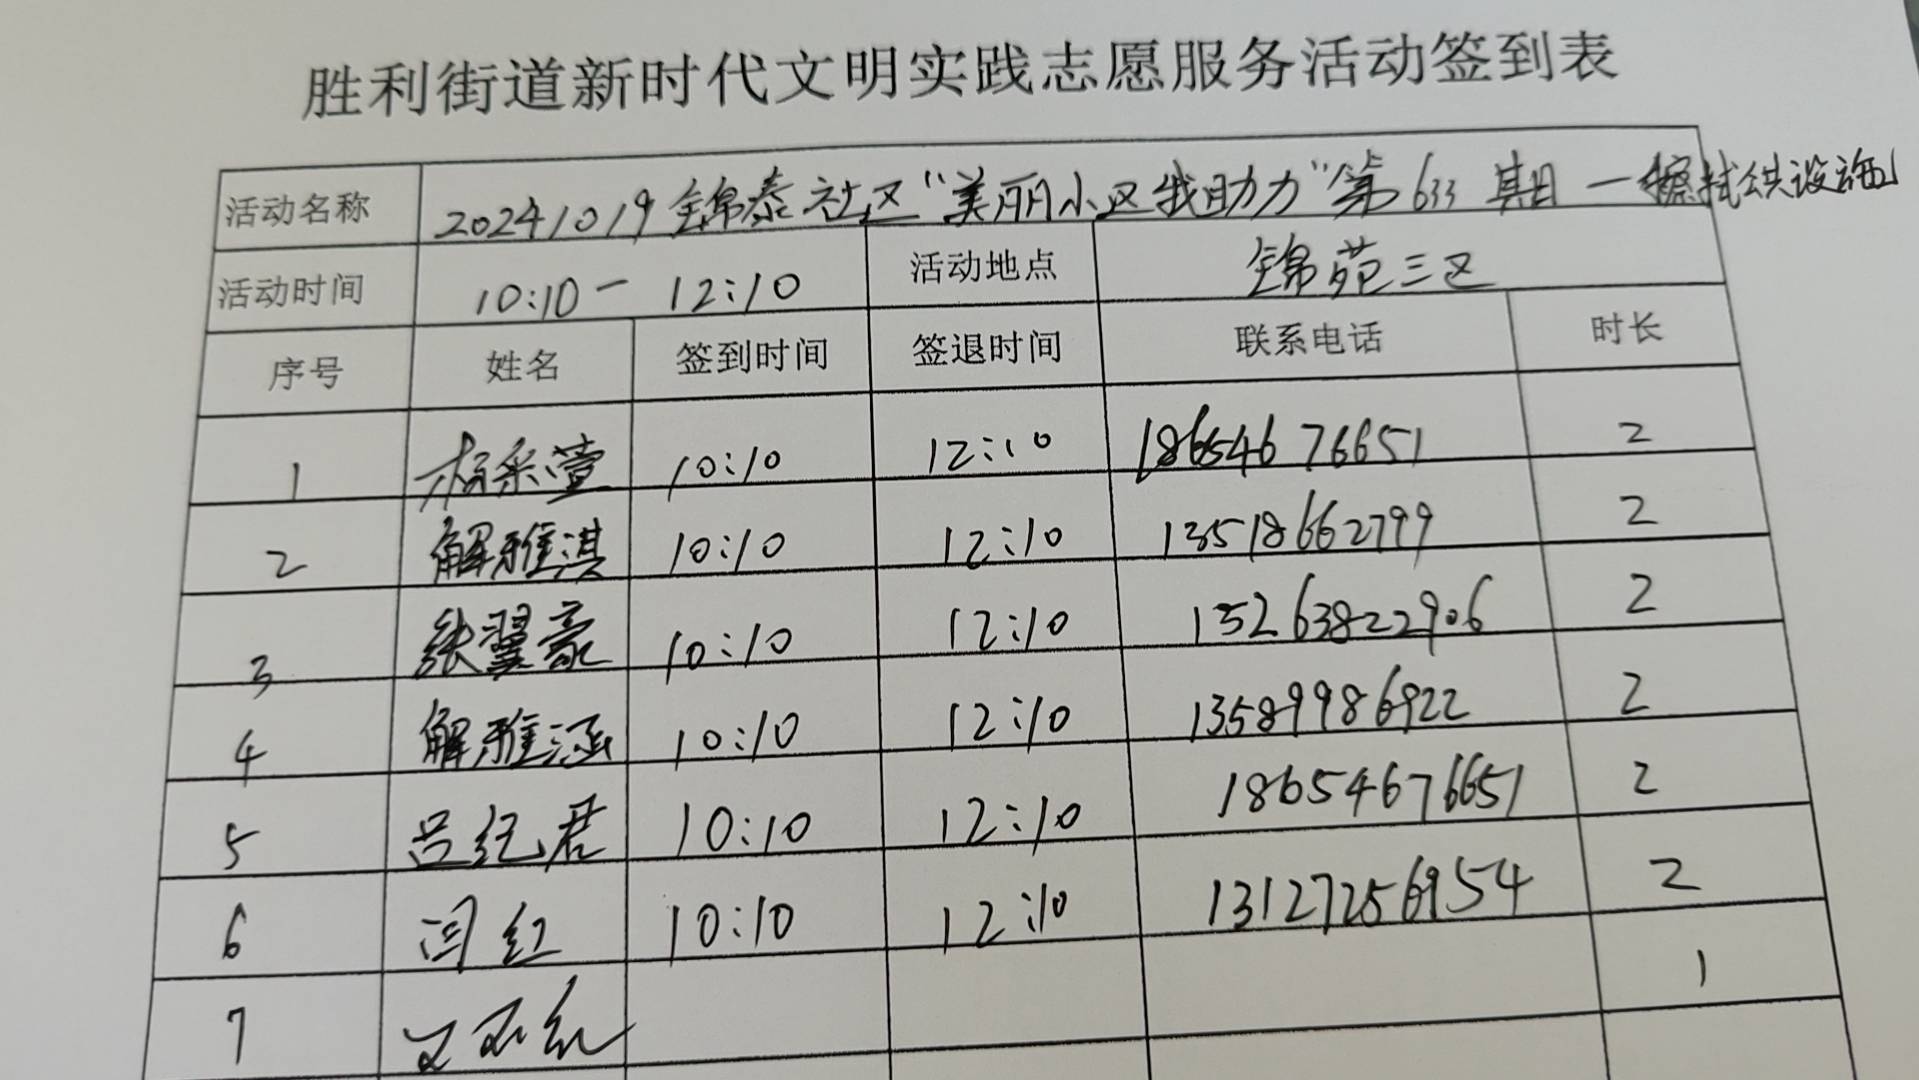 胜利街道新时代文明实践志愿服务活动签到表
活动名称 20241019锦泰社区“美丽小区我助力”第633期一擦拭公共设施
活动时间 10:10一12:10 活动地点 锦苑三区
序号 姓名 签到时间 签退时间 联系电话 时长
1 杨采萱 10:10 12:10 18654676651 2
2 解雅淇 10:10 12:10 13518662799 2
3 张翼豪 10:10 12:10 15263822906 2
4 解雅涵 10:10 12:10 13589986922 2
5 吕纪君 10:10 12:10 18654676651 2
6 闫红 10:10 12:10 13127256954 2
7 1